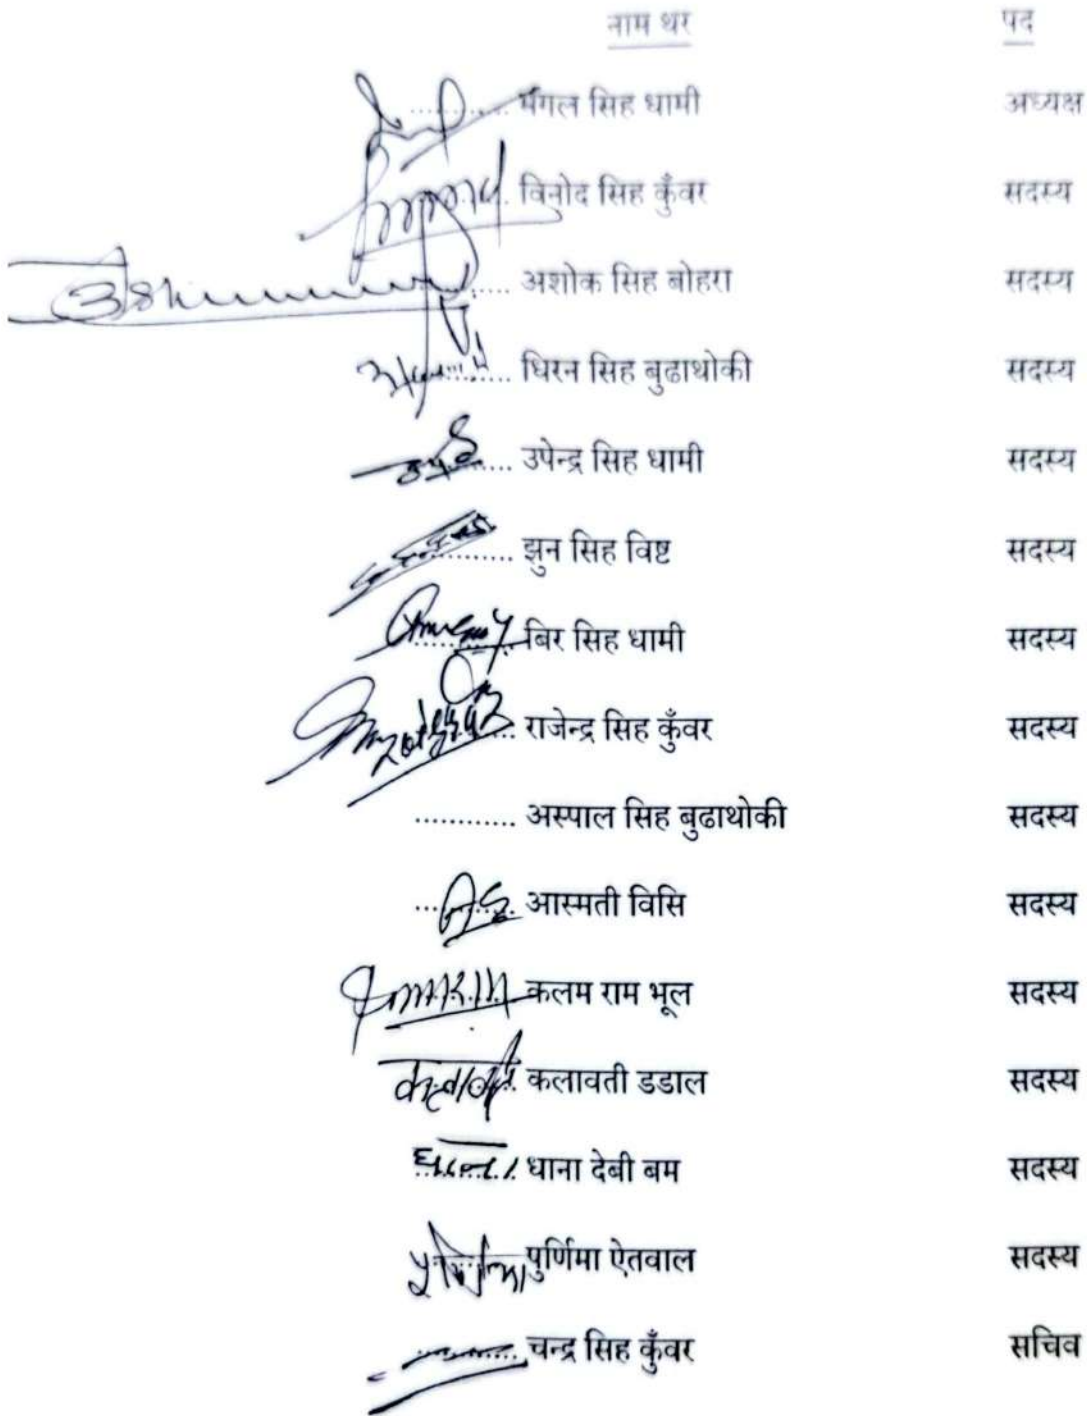 नाम थर पद
............ मंगल सिह धामी अध्यक्ष
............ विनोद सिह कुँवर सदस्य
............ अशोक सिह बोहरा सदस्य
............ धिरन सिह बुढाथोकी सदस्य
............ उपेन्द्र सिह धामी सदस्य
............ झुन सिह विष्ट सदस्य
............ बिर सिह धामी सदस्य
............ राजेन्द्र सिह कुँवर सदस्य
............ अस्पाल सिह बुढाथोकी सदस्य
............ आस्मती विसि सदस्य
............ कलम राम भूल सदस्य
............ कलावती डडाल सदस्य
............ धाना देबी बम सदस्य
............ पुर्णिमा ऐतवाल सदस्य
............ चन्द्र सिह कुँवर सचिव